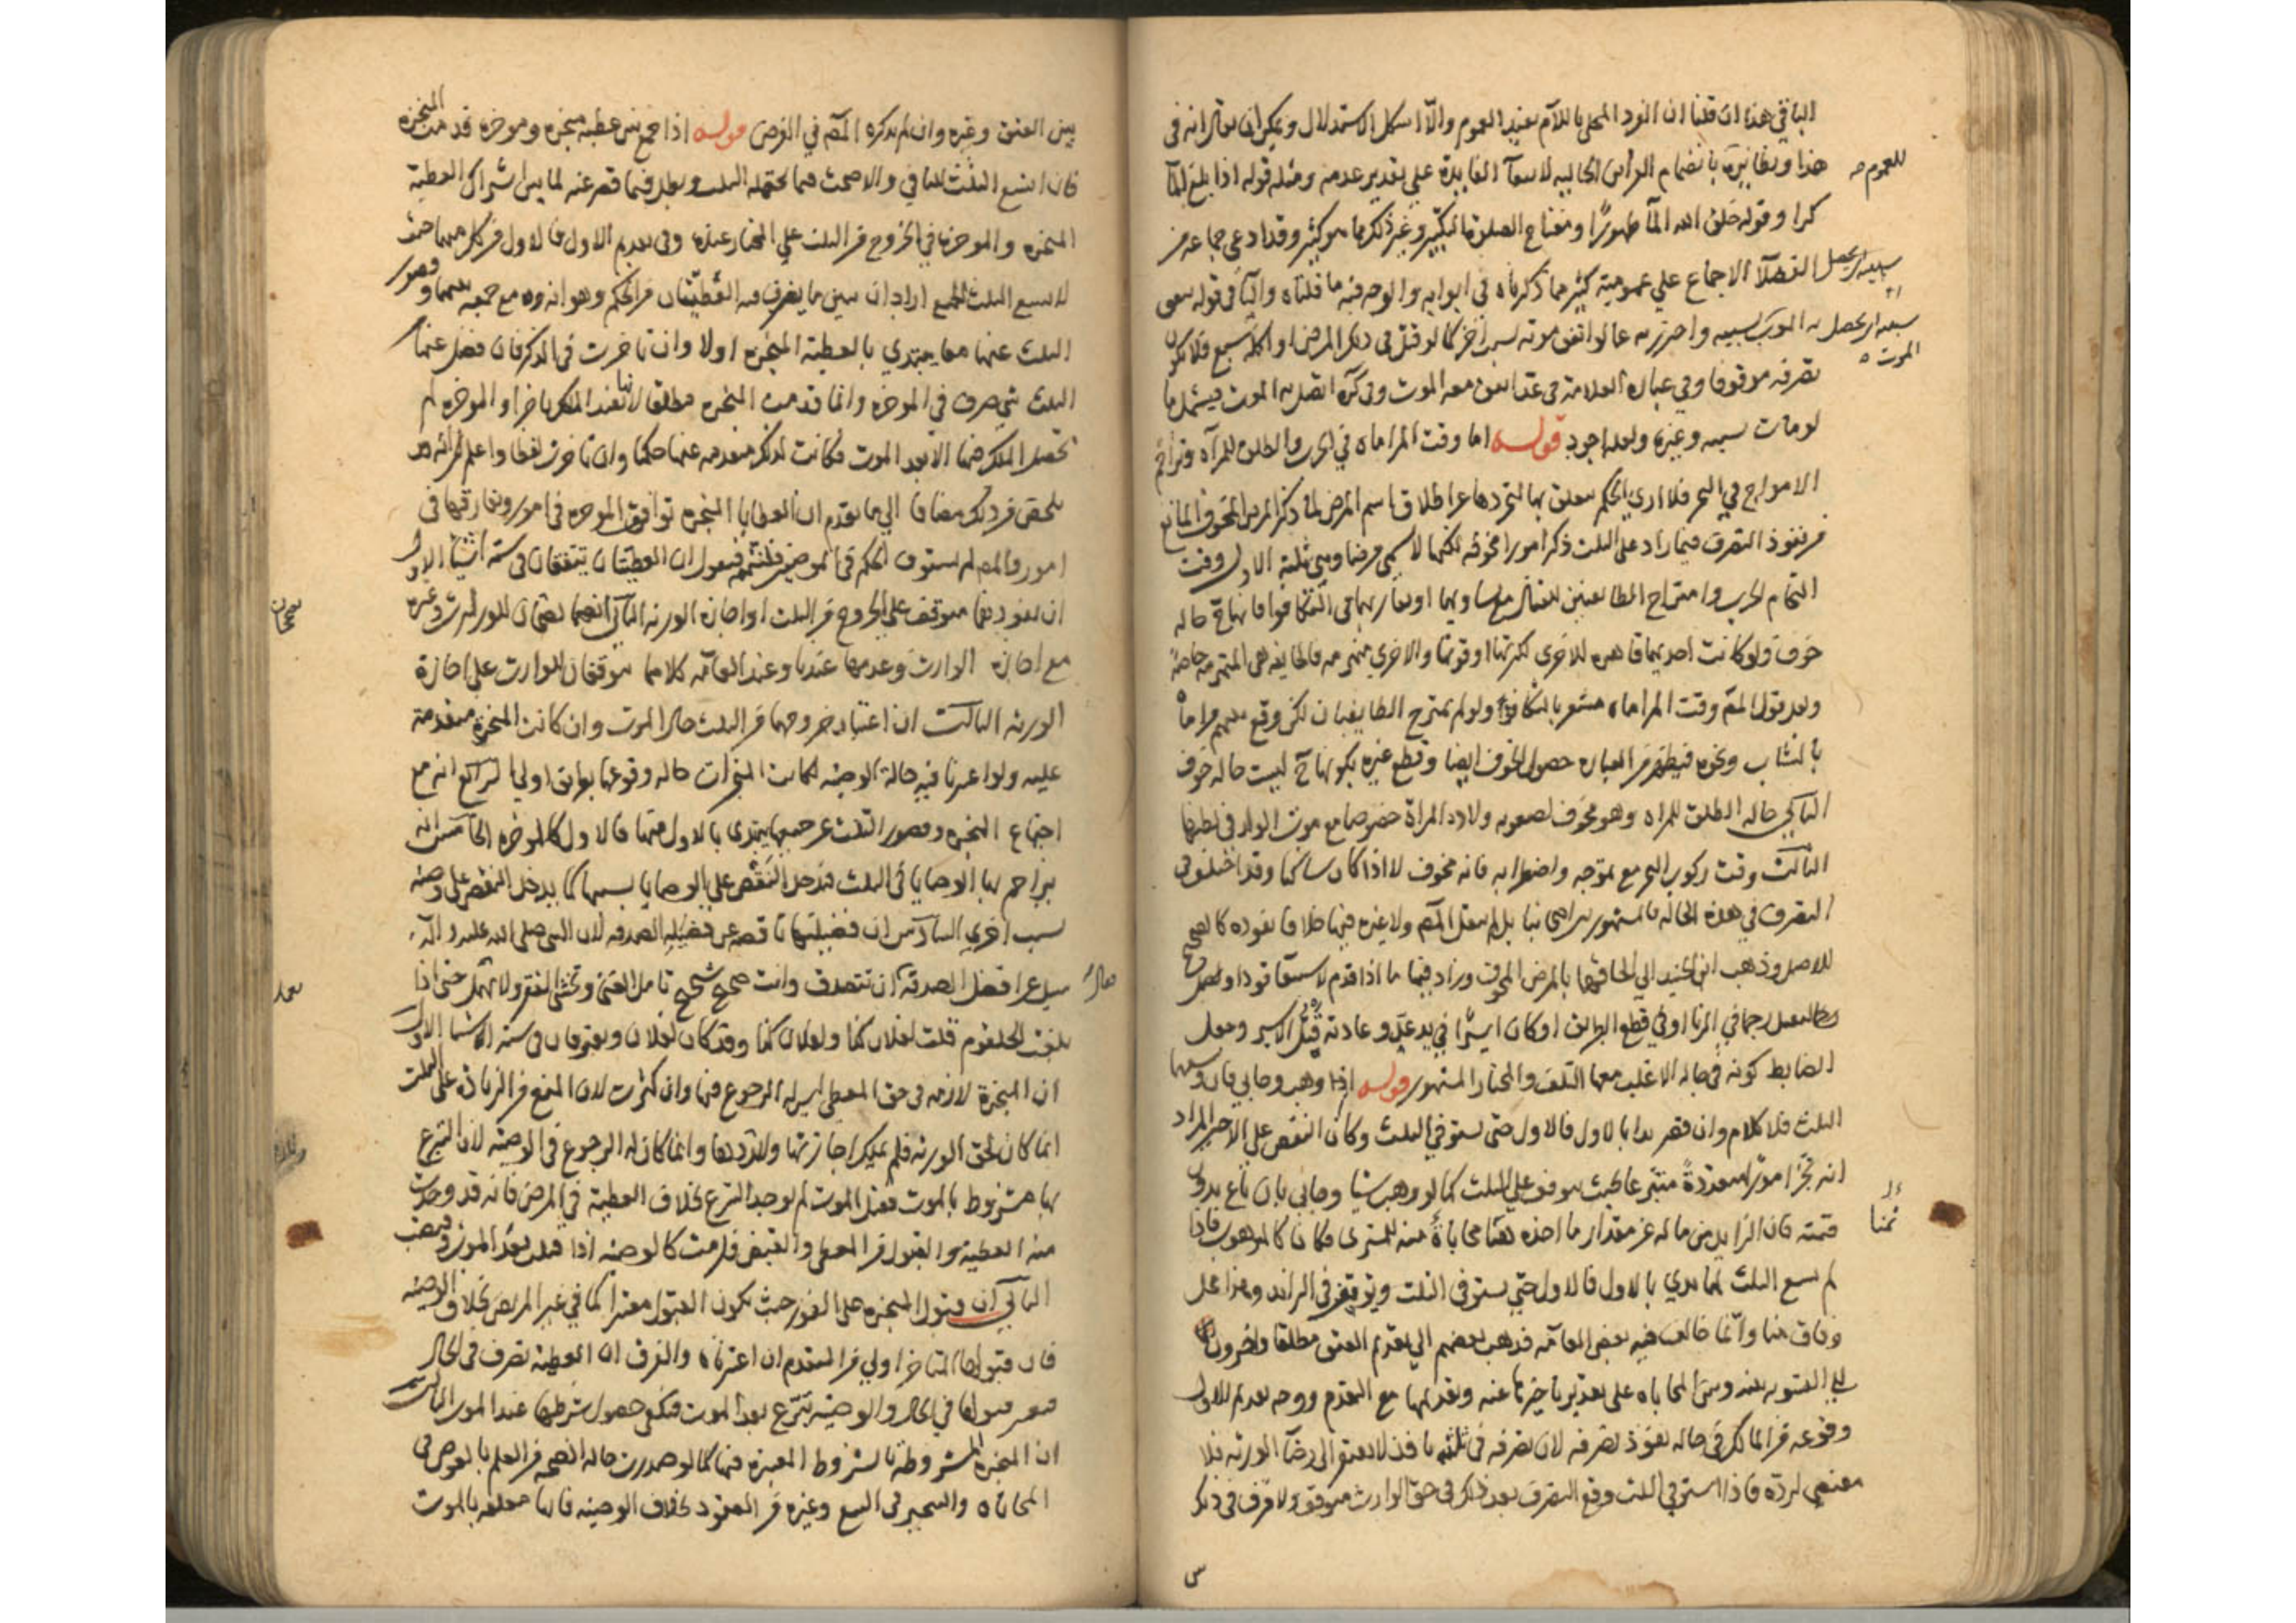 الباقي هذا ان قلنا ان المفرد المحلى باللام يفيد العموم والا اشكل الاستدلال ويمكن ان يقال انه في
هذا ونظائره بانضمام القرائن الحالية لانتفاء الفايدة على تقدير عدمه ومثله قوله اذا بلغ الماء
للعموم صح
كرا وقوله خلق الله الماء طهورا ومفتاح الصلوة التكبير وغير ذلك مما هو كثير وقد ادعى جماعة من
الفضلاء الاجماع على عمومية كثير مما ذكرناه في ابوابه والوجه فيه ما قلناه والباء في قوله بمعنى
به الموت بسببه واحترز به عما لو اتفق موته بسبب آخر كما لو قتل في ذلك المرض او اكله سبع فلا يكون
الموت
تصرفه موقوفا وفي عبارة العلامة في عتق معه الموت وفي اتصل به الموت فيشمل ما
لو مات بسببه وغيره ولعله اجود قوله اما وقت المراماة في الحرب والطلق للمرأة وتزاحم
الامواج في البحر فلا ارى الحكم يتعلق بها لتجردها عن اطلاق اسم المرض لما ذكر المرض المخوف المانع
من نفوذ التصرف فيما زاد على الثلث ذكر امورا مخوفة لكنها لا تسمى مرضا وهي ثلثة الاول وقت
التحام الحرب وامتزاج الطايفتين للقتال مع تساويهما او تقاربهما في التكافؤ فانها ح حالة
خوف ولو كانت احديهما قاهرة للاخرى لكثرتها او قوتها والاخرى منهزمة فالخايفة هي المنهزمة خاصة
وقول المص وقت المراماة مشعر بالتكافؤ ولو لم يمتزج الطايفتان لكن وقع بينهم مراماة
بالنشاب ونحوه فيظهر من العبارة حصول الخوف ايضا وقطع غيره بكونها ح ليست حالة خوف
الثاني حالة الطلق للمرأة وهو مخوف لصعوبة ولادة المرأة خصوصا مع موت الولد في بطنها
الثالث وقت ركوب البحر مع تموجه واضطرابه فانه مخوف لا اذا كان ساكنا وقد اختلف في
التصرف في هذه الحالة فالمشهور بين اصحابنا بل لم ينقل المص ولا غيره فيها خلافا نفوذه كالصحيح
للاصل وذهب ابن الجنيد الى الحاقها بالمرض المخوف وزاد فيها ما اذا قدم لاستيفاء قود او لقتل
رجما في الزنا او في قطع الطريق او كان اسيرا في يد عدو عادته قتل الاسير وجعل
الضابط كونه في حالة الاغلب معها التلف والمختار المشهور قوله اذا وهب وحابى فان وسعهما
الثلث فلا كلام وان قصر بدا بالاول فالاول حتى يستوفي الثلث وكان النقص على الاخير المراد
انه نجز امورا متعددة متبرعا بحيث يتوقف على الثلث كما لو وهب شيئا وحابى بان باع بدون
ثمنا
قيمته فان الزايد من ماله عن مقدار ما اخذه محاباة منه للمشتري فكان كالموهوب فاذا
لم يسع الثلث لهما بدي بالاول فالاول حتى يستوفى الثلث ويتوقف في الزائد وهذا محل
وفاق منا وانما خالف فيه بعض العامة فذهب بعضهم الى تقديم العتق مطلقا واخرون
الى التسوية بينه وبين المحاباة على تقدير تاخيرها عنه وتقديمها مع التقدم ووجه تقديم الاول
وقوعه من المالك في حالة نفوذ تصرفه لان تصرفه في ثلثه نافذ لا يفتقر الى رضا الورثة فلا
مقتضي لرده فاذا استوفى الثلث وقع التصرف بعد ذلك في حق الوارث فيتوقف ولا فرق في ذلك
بين العتق وغيره وان لم يذكره المص في الفرض قوله اذا جمع بين عطية منجزة وموخرة قدمت المنجزة
فان اتسع الثلث للباقي والا صحت فيما يحتمله الثلث وبطل فيما قصر عنه لما بين اشتراك العطية
المنجزة والموخرة في الخروج من الثلث على المختار عنده وفي تقديم الاول فالاول من كل منهما حيث
لا يسع الثلث للجميع اراد ان يبين ما يفترق فيه العطيتان من الحكم وهو انه مع جمعه بينهما وقصور
الثلث عنهما معا يبتدي بالعطية المنجزة اولا وان تاخرت في الذكر فان فضل عنها
الثلث شي صرف في الموخرة وانما قدمت المنجزة مطلقا لانها تفيد الملك ناجزا والموخرة لم
تحصل الملك فيها الا بعد الموت فكانت لذلك متقدمة عنها حكما وان تاخرت لفظا واعلم انه قد
يلخص من ذلك مضافا الى ما تقدم ان العطايا المنجزة توافق الموخرة في امور وتفارقها في
امور والمص لم يستوف الحكم في الموضعين فنقول ان العطيتان يتفقان في ستة اشياء الاول
ان نفوذهما متوقف على الخروج من الثلث او اجازة الورثة الثاني انهما يصحان للوارث وغيره
يصحان
مع اجازة الوارث وعدمها عندنا وعند العامة كلاهما يتوقفان للوارث على اجازة
الورثة الثالث ان اعتبار خروجهما من الثلث حال الموت وان كانت المنجزة متقدمة
عليه ولو اعتبرنا فيه حالة الوصية لكانت المنجزات حالة وقوعها بطريق اولى الرابع انه مع
اجتماع المنجزة وقصور الثلث عن جميعها يبتدى بالاول منها فالاول كالموخرة الخامس انه
يزاحم بها الوصايا في الثلث فيدخل النقص على الوصايا بسببها كما يدخل النقص على وصية
بسبب اخرى السادس ان فضيلتها ناقصة عن فضيلة الصدقة لان النبي صلى الله عليه واله
سيل عن افضل الصدقة ان تتصدق وانت صحيح شحيح تامل الغنى وتخشى الفقر ولا تمهل حتى اذا
بلغت الحلقوم قلت لفلان كذا ولفلان كذا وقد كان لفلان ويفترقان في ستة اشياء الاول
ان المنجزة لازمة في حق المعطي ليس له الرجوع فيها وان كثرت لان المنع من الزيادة على الثلث
انما كان لحق الورثة فلم يملك اجازتها ولا ردها وانما كان له الرجوع في الوصية لان التبرع
بها مشروط بالموت فقبل الموت لم يوجد التبرع بخلاف العطية في المرض فانه قد وجدت
منه العطية والقبول من المعطى والقبض فلزمت كالوصية اذا قبلت بعد الموت وقبضت
الثاني ان قبول المنجزة على الفور حيث يكون القبول معتبرا كما في غير المريض بخلاف الوصية
فان قبولها المتاخر اولى من المتقدم ان اعتبرناه والفرق ان العطية تصرف في الحال
فيعتبر قبولها في الحال والوصية تبرع بعد الموت فيكفي حصول شرطها عند الموت الثالث
ان المنجزة مشروطة بالشروط المعتبرة فيها كما لو صدرت حالة الصحة من العلم بالعوض في
المحاباة والتنجيز في البيع وغيره من العقود بخلاف الوصية فانها معلقة بالموت